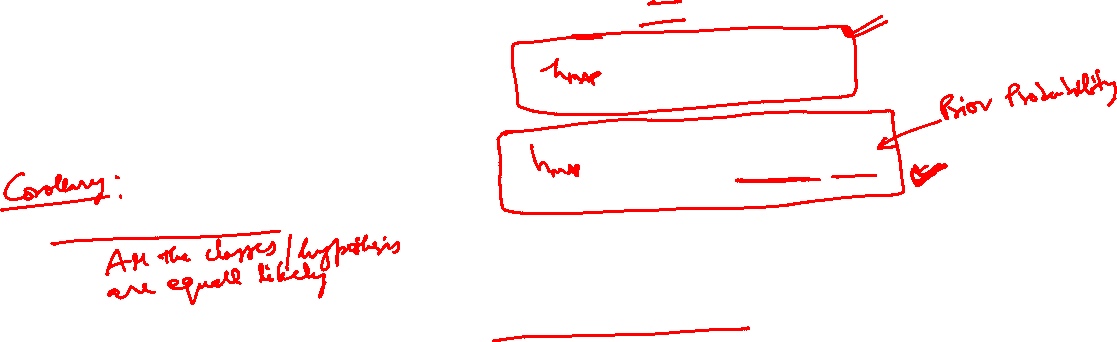 hMAP
Prior Probability
hMAP
Corollary:
All the classes/hypothesis
are equall likely